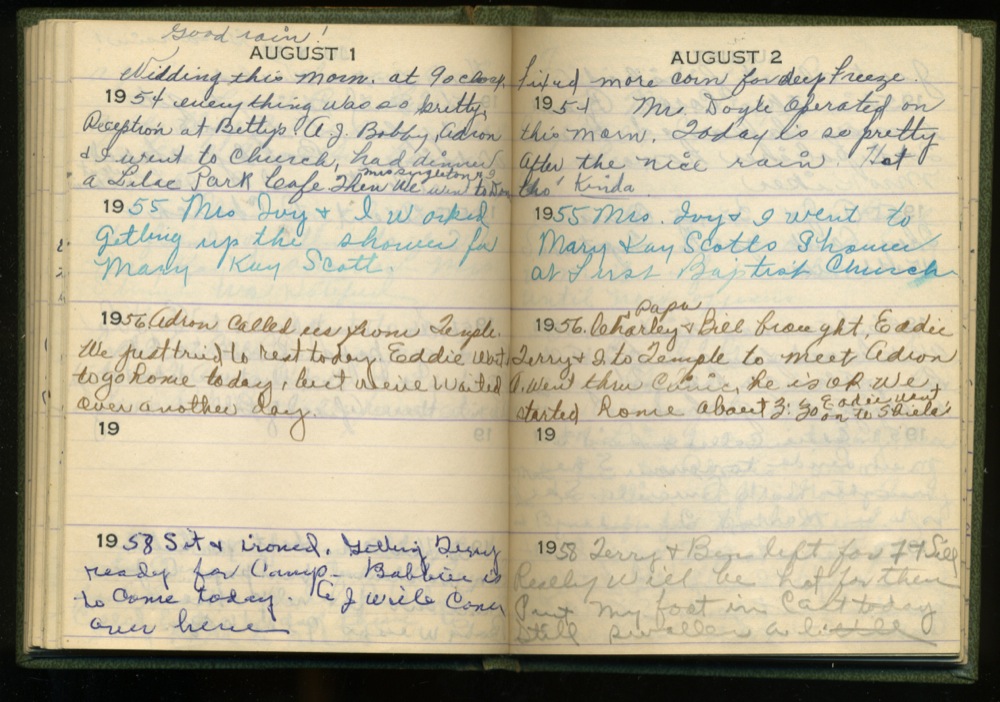 Good rain!
AUGUST 1
Wedding this morn. at 9 o clock
1954 everything was so pretty,
Reception at Bettys. A.J. Bobby Adron
& I went to church, had dinner
a Lilac Park Cafe. Then we went to
Mrs Singleton
1955 Mrs Ivy & I worked
getting up the shower for
Mary Kay Scott.
1956 Adron called us from Temple.
We just tried to rest today. Eddie want
to go home today, but we waited
over another day.
19
1958 Sit & ironed. Getting Terry
ready for Camp - Bobbie is
to come today. A J will come
over here
AUGUST 2
Fixed more corn for deep freeze.
1954 Mr. Doyle operated on
this morn. Today is so pretty
after the nice rain. Hot
tho' Kinda.
1955 Mrs. Ivy & I went to
Mary Kay Scotts Shower
at First Baptist Church
Papa
1956. Charley & Bill brought, Eddie
Terry & I to Temple to meet Adron
A. went thru Clinic, he is OK. We
started home about 3:30 Eddie went
on to Shiela's
19
1958 Terry & Ben left for Ft Sill
Really will be hot for them
Put my foot in Cast today
still swollen a little